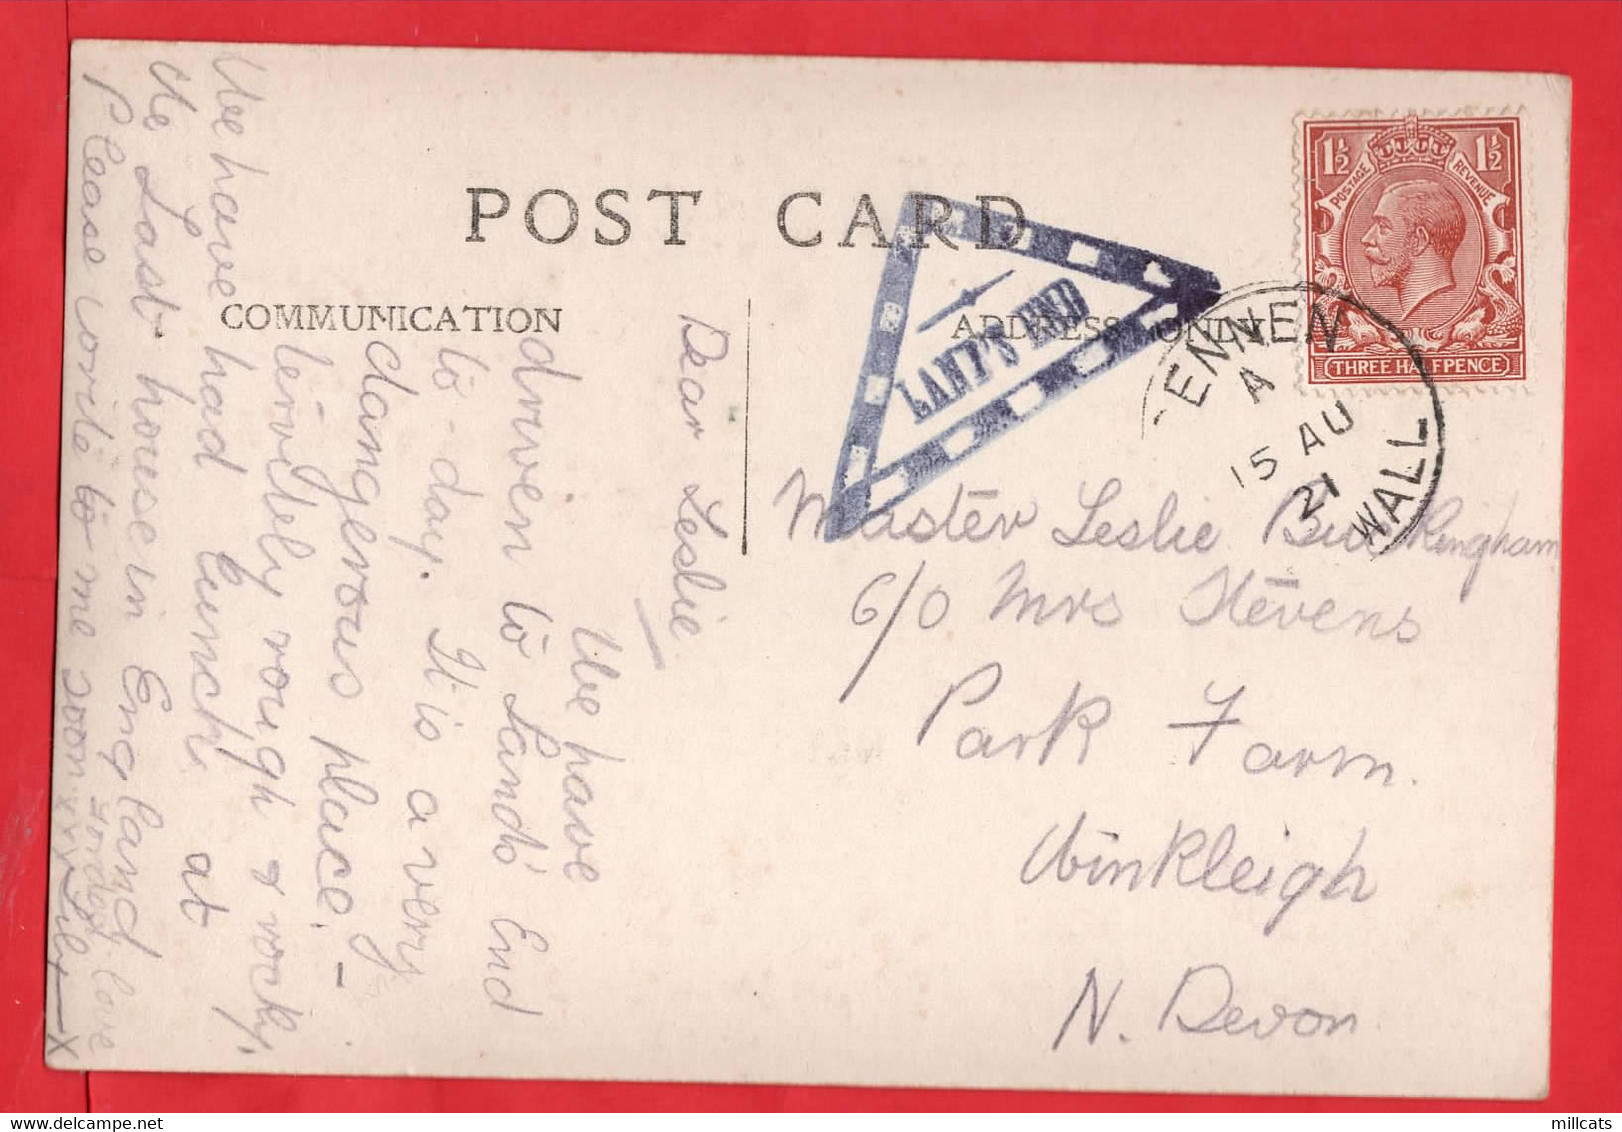 POST CARD
COMMUNICATION
ADDRESS ONLY
Dear Leslie
We have
driven to Land's End
to-day. It is a very
dangerous place.-
terribely rough & rocky,
We have had lunch at
the Last house in England
Please write to me soon
Fondest love
Lily
Master Leslie Buckingham
C/O Mrs Stevens
Park Farm.
Winkleigh
N. Devon
LAND'S END
ENNEN
A
15 AU
21
WALL
1½ 1½
POSTAGE REVENUE
THREE HALFPENCE
millcats